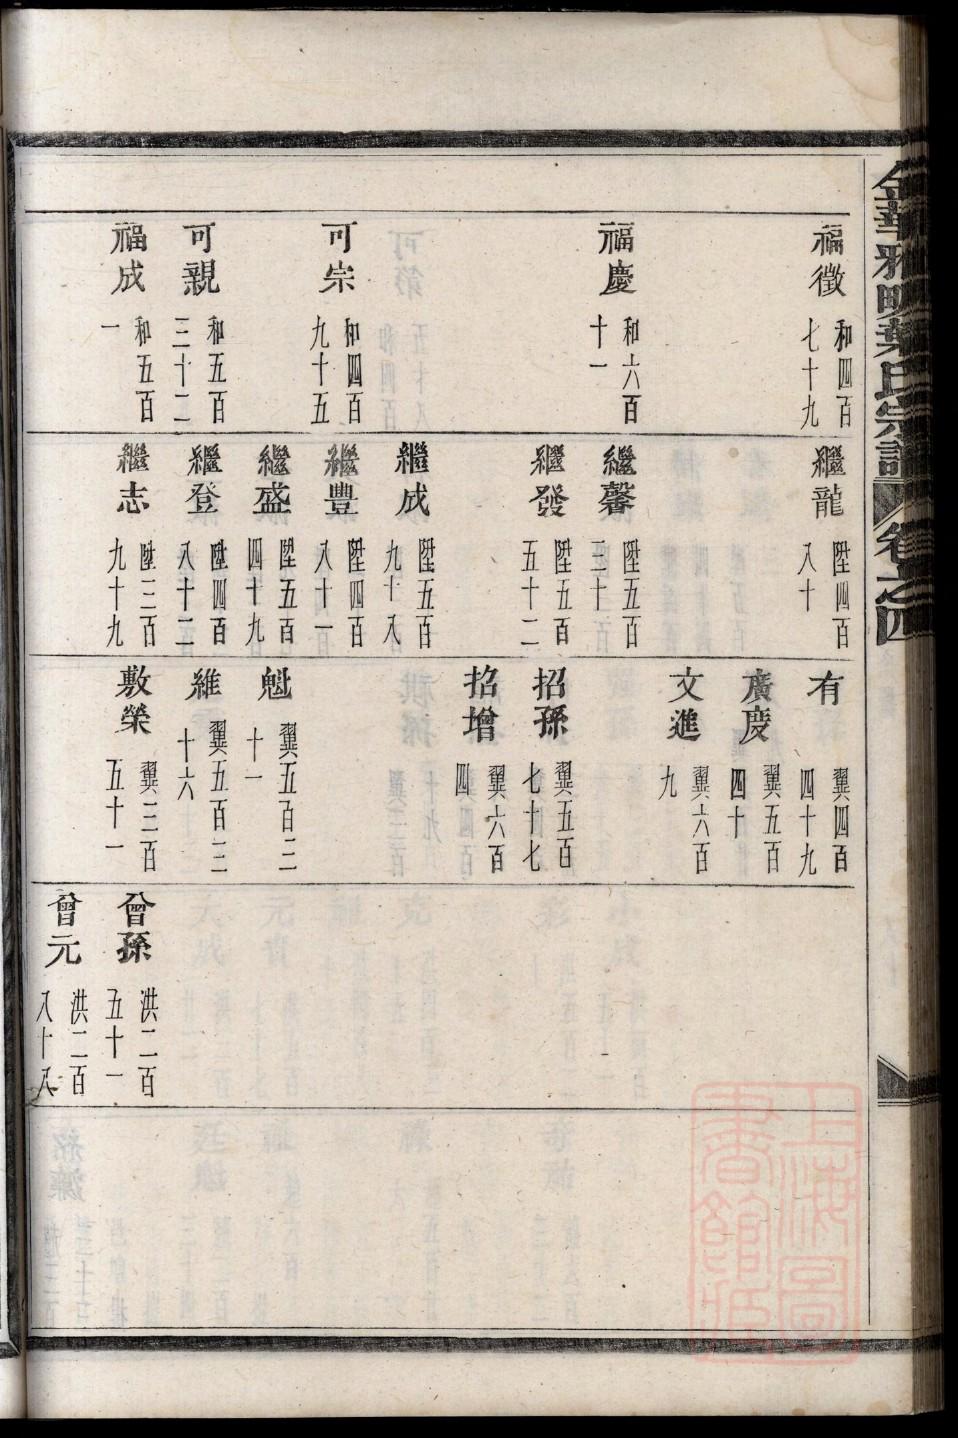 金華雅畈葉氏宗譜 卷之四
福徵 和四百七十九
福慶 和六百十一
可宗 和四百九十五
可親 和五百三十二
福成 和五百一
繼龍 陞四百八十
繼馨 陞五百三十
繼發 陞五百五十二
繼成 陞五百九十八
繼豐 陞四百八十一
繼盛 陞五百四十九
繼登 陞四百八十二
繼志 陞三百九十九
有 翼四百四十九
廣慶 翼五百四十
文進 翼六百九
招孫 翼五百七十七
招增 翼六百四
魁 翼五百二十一
維 翼五百三十六
敷榮 翼三百五十一
曾孫 洪二百五十一
曾元 洪二百八十八
上海圖書館藏